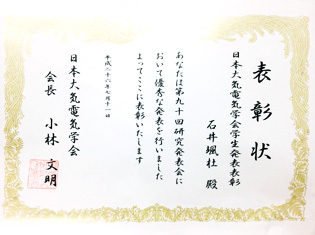 表彰状
日本大気電気学会学生発表表彰
石井颯杜 殿
あなたは第九十回研究発表会に
おいて優秀な発表を行いました
よってここに表彰いたします
平成二十六年七月十一日
日本大気電気学会
会長 小林 文明